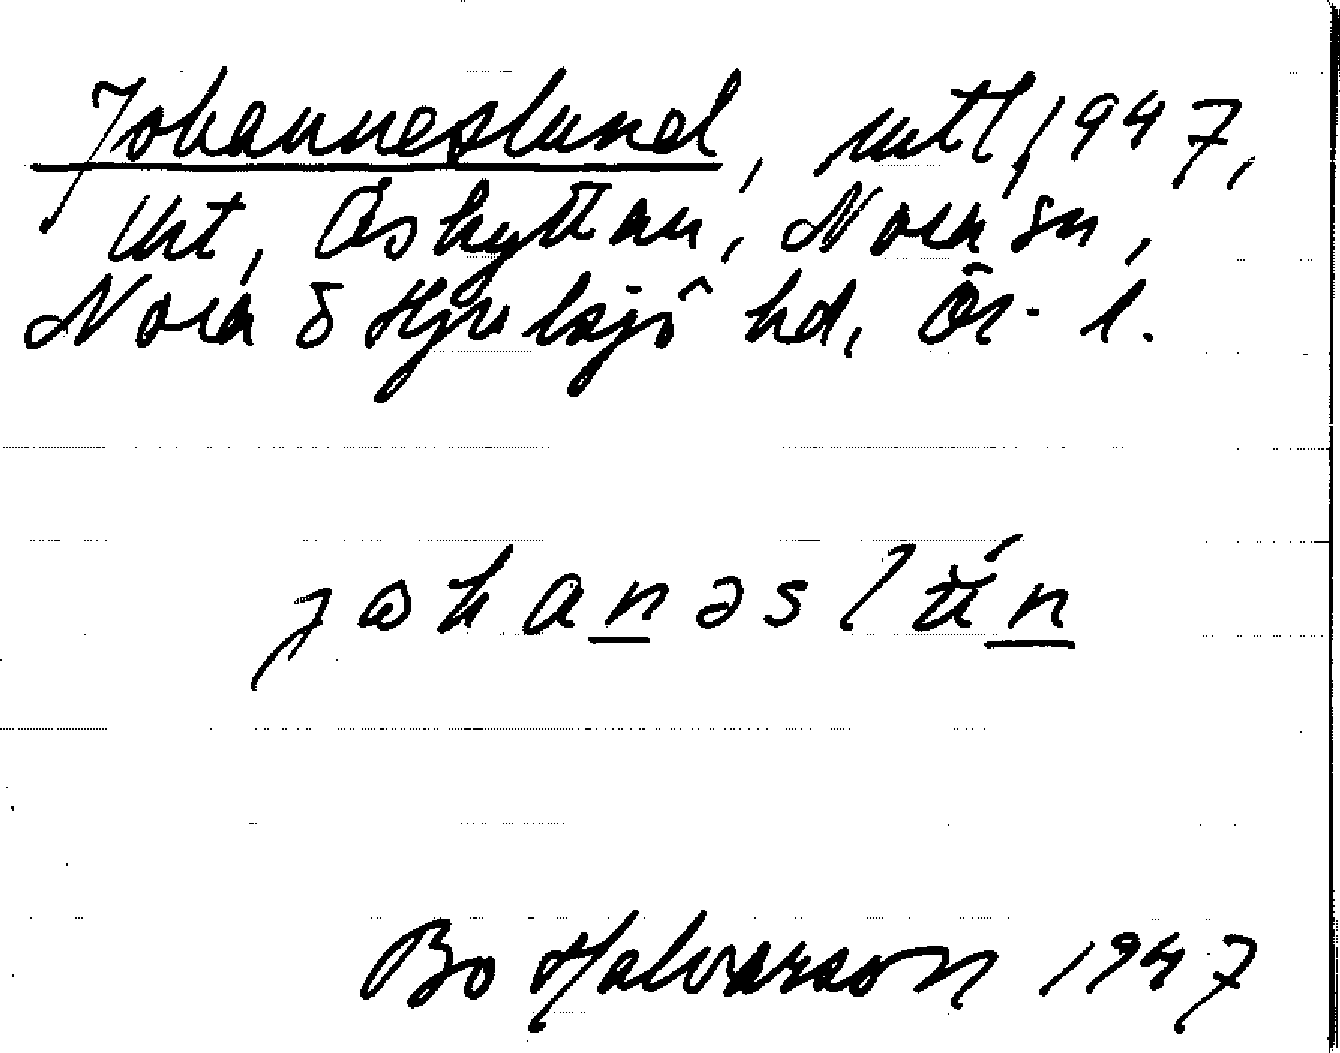 Johanneslund, uttl 1947,
Urt, Åskyttan, Nora sn,
Nora & Hjulsjö hd, Ör. l.
jωhanəslún
Bo Halvarson 1947